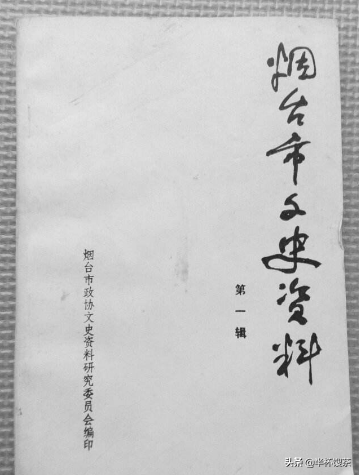 烟台市文史资料
第一辑
烟台市政协文史资料研究委员会编印
头条 @半杯馊茶